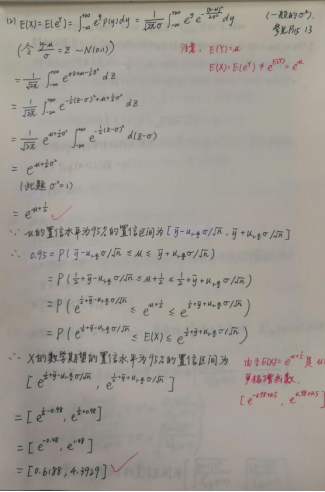 (2) E(X)=E(e^Y)=∫_{-∞}^{+∞} e^y p(y)dy = 1/(√2π σ) ∫_{-∞}^{+∞} e^y e^{-(y-u)²/2σ²} dy (一般的σ²).
(令 (y-u)/σ = Z ~ N(0,1))
注意: E(Y)=u
= 1/√2π ∫_{-∞}^{+∞} e^{σz+u-½z²} dz
E(X)=E(e^Y)≠e^{E(Y)}=e^u
= 1/√2π ∫_{-∞}^{+∞} e^{-½(z-σ)²+u+½σ²} dz
= 1/√2π e^{u+½σ²} ∫_{-∞}^{+∞} e^{-½(z-σ)²} d(z-σ)
= e^{u+½σ²}
(此题 σ²=1)
= e^{u+½} ✓
∵ u的置信水平为95%的置信区间为 [ȳ-u_{1-α/2} σ/√n, ȳ+u_{1-α/2} σ/√n]
∴ 0.95 = P(ȳ-u_{1-α/2} σ/√n ≤ u ≤ ȳ+u_{1-α/2} σ/√n)
= P(½+ȳ-u_{1-α/2} σ/√n ≤ u+½ ≤ ½+ȳ+u_{1-α/2} σ/√n)
= P(e^{½+ȳ-u_{1-α/2} σ/√n} ≤ e^{u+½} ≤ e^{½+ȳ+u_{1-α/2} σ/√n})
= P(e^{½+ȳ-u_{1-α/2} σ/√n} ≤ E(X) ≤ e^{½+ȳ+u_{1-α/2} σ/√n})
∴ X的数学期望的置信水平为95%的置信区间为
[e^{½+ȳ-u_{1-α/2} σ/√n}, e^{½+ȳ+u_{1-α/2} σ/√n}]
由于E(X)=e^{u+½}是u
严格增函数.
= [e^{½-0.98}, e^{½+0.98}]
[e^{-0.98+0.5}, e^{0.98+0.5}]
= [e^{-0.48}, e^{1.48}]
= [0.6188, 4.3929] ✓